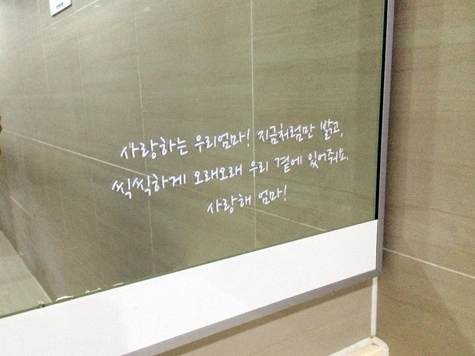 사랑하는 우리엄마! 지금처럼만 밝고,
씩씩하게 오래오래 우리 곁에 있어줘요.
사랑해 엄마!